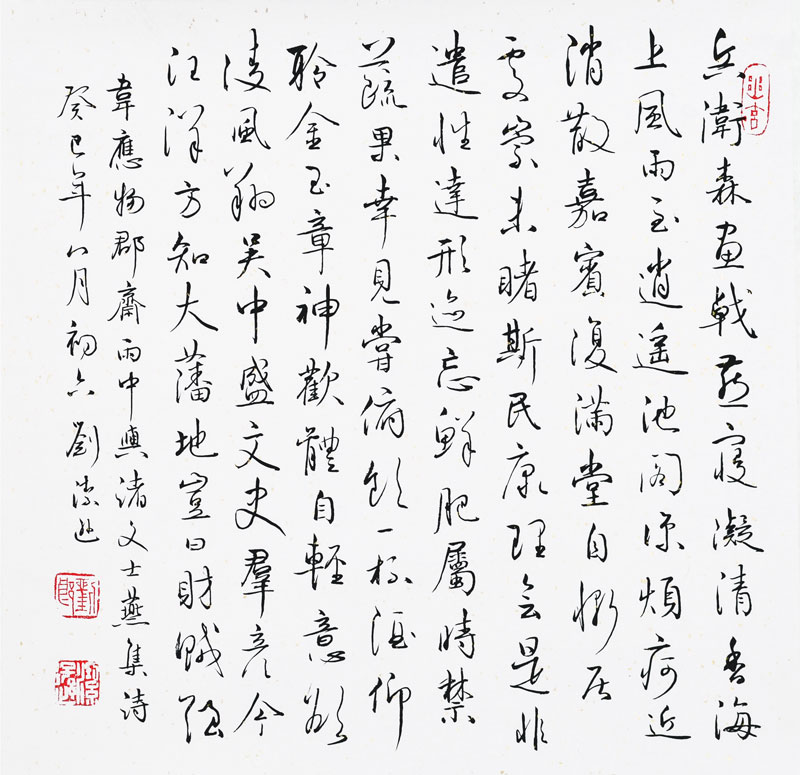 兵衛森畫戟燕寢凝清香海
上風雨至逍遙池閣涼煩疴近
消散嘉賓復滿堂自慚居
處崇未睹斯民康理會是非
遣性達形迹忘鮮肥屬時禁
蔬果幸見嘗俯飲一杯酒仰
聆金玉章神歡體自輕意欲
淩風翔吳中盛文史羣彥今
汪洋方知大藩地豈曰財賦強
韋應物郡齋雨中與諸文士燕集詩
癸巳年八月初六劉